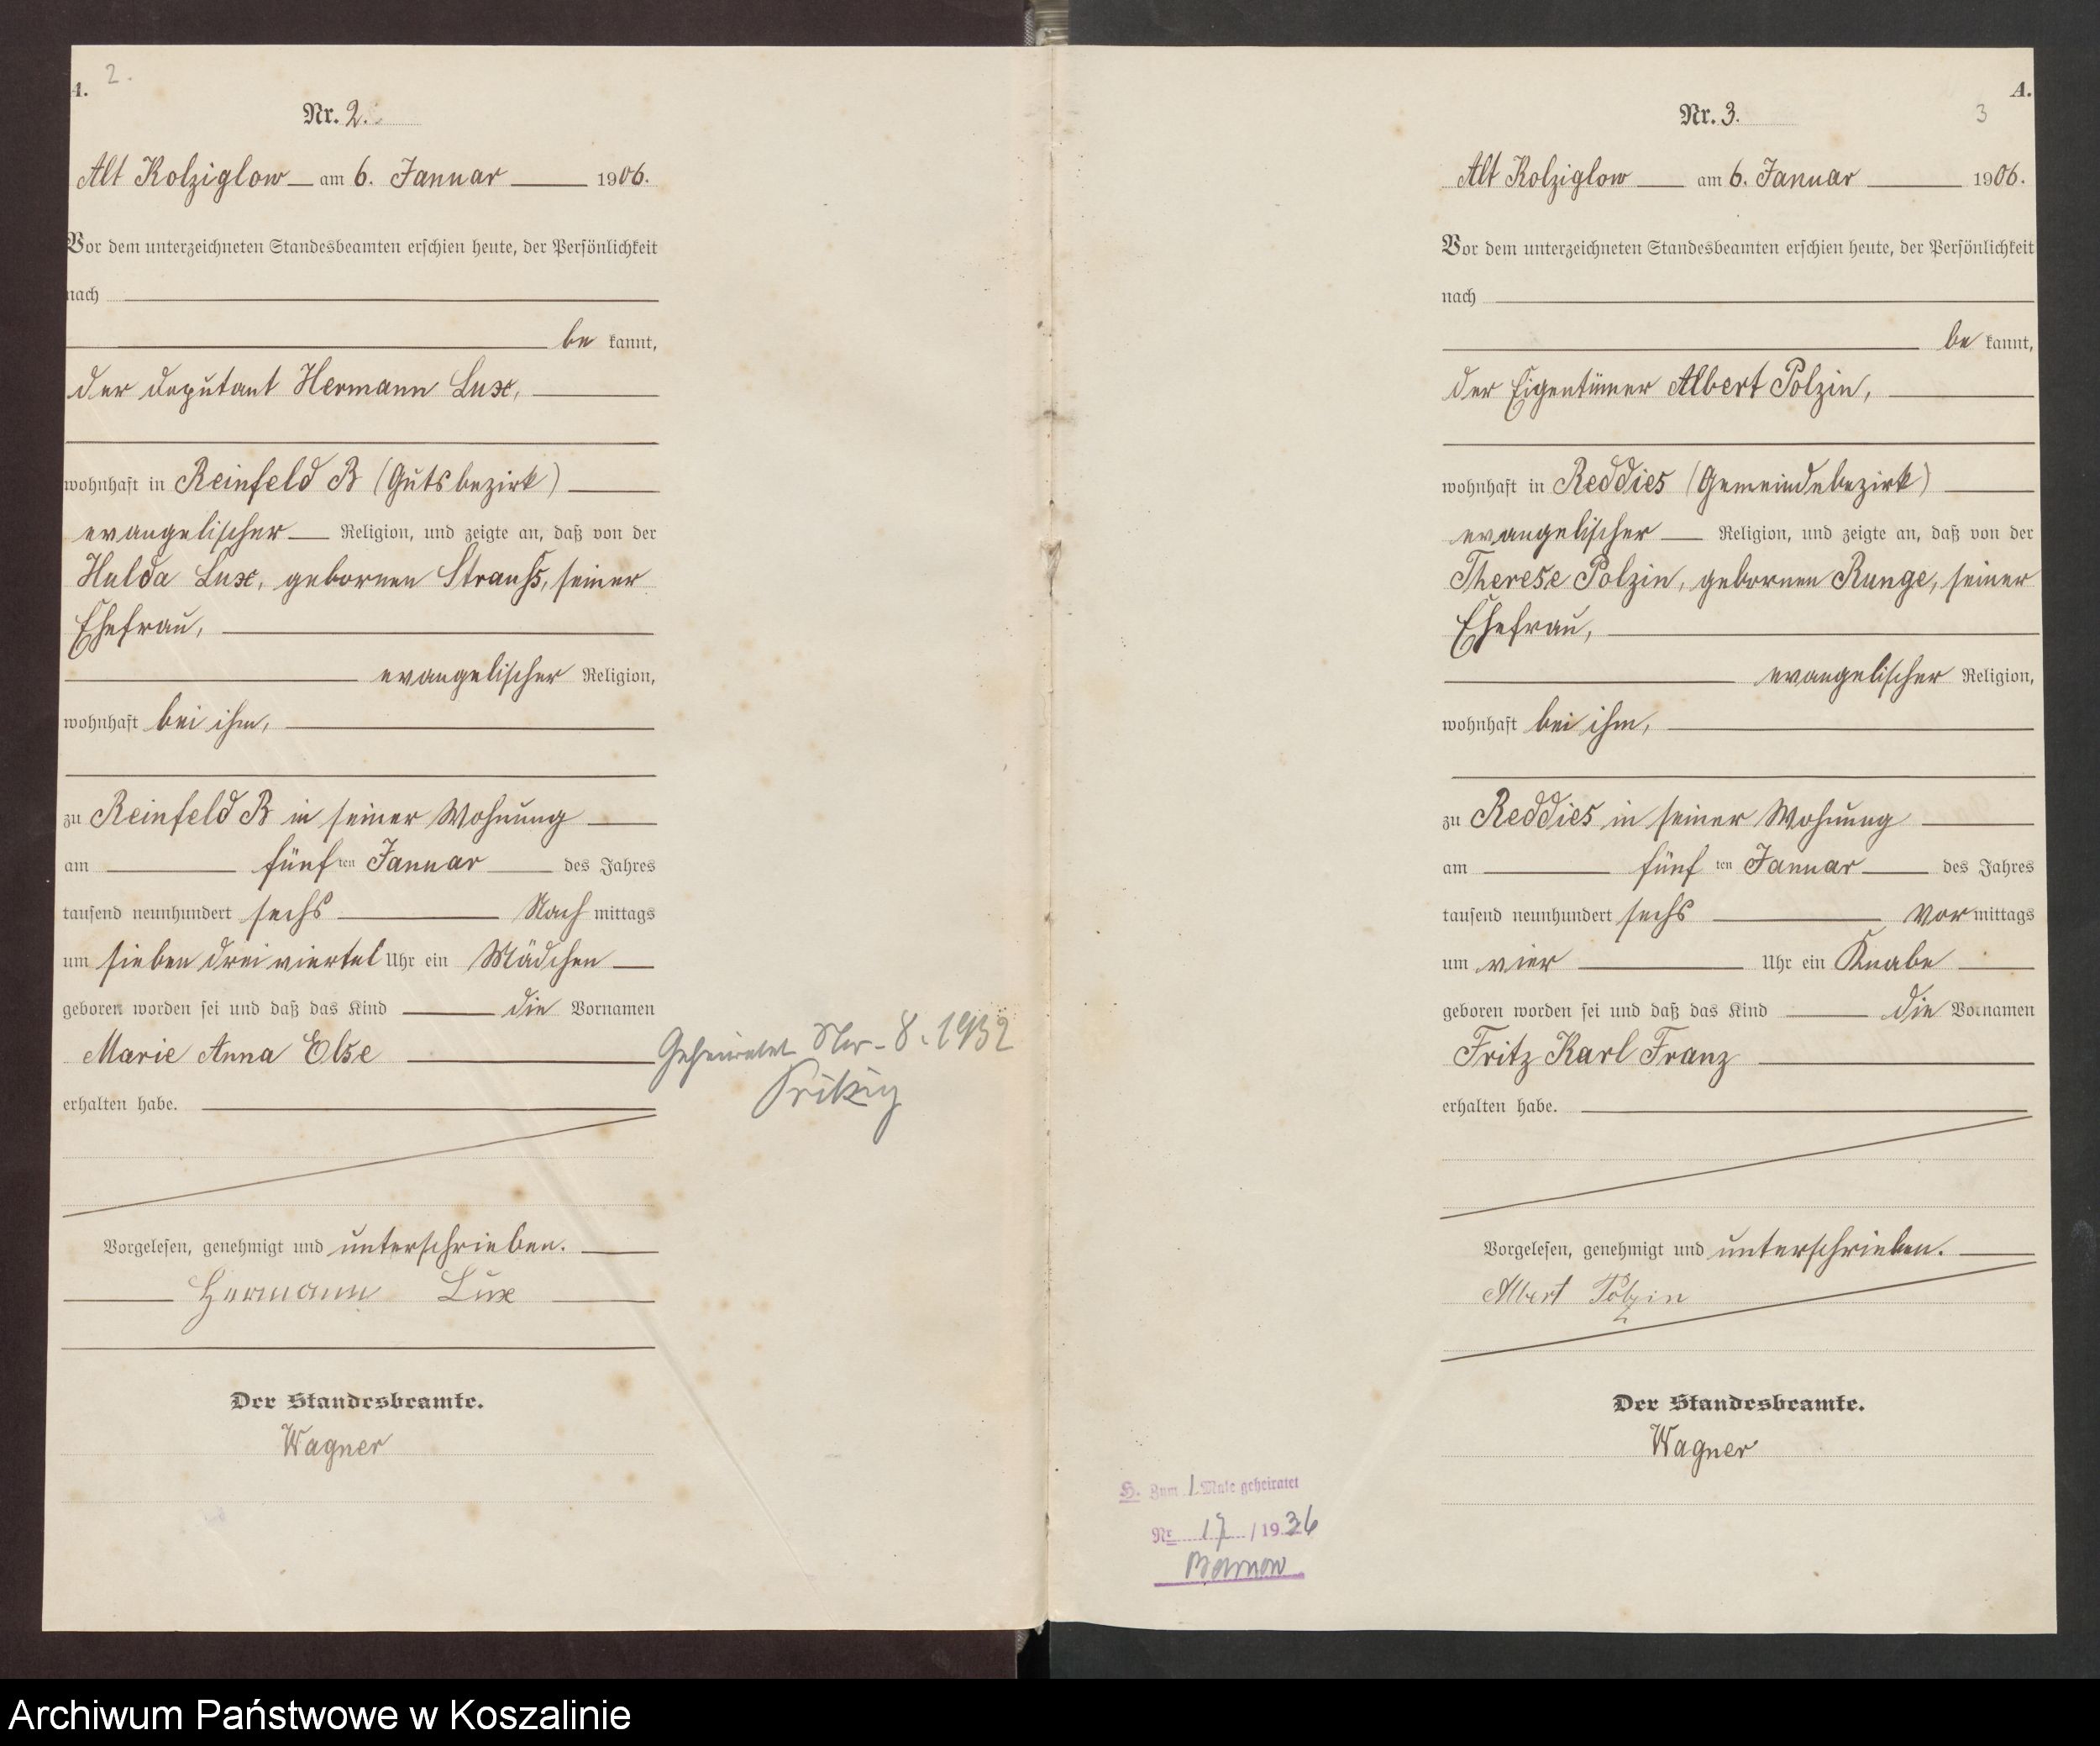 A.
2.
Nr. 2.
Alt Kolziglow am 6. Januar 1906.
Vor dem unterzeichneten Standesbeamten erschien heute, der Persönlichkeit
nach
be kannt,
der Deputant Hermann Lux,
wohnhaft in Reinfeld B (Gutsbezirk)
evangelischer Religion, und zeigte an, daß von der
Hulda Lux, gebornen Strauß, seiner
Ehefrau,
evangelischer Religion,
wohnhaft bei ihm,
zu Reinfeld B in seiner Wohnung
am fünf ten Januar des Jahres
tausend neunhundert sechs Nach mittags
um sieben drei viertel Uhr ein Mädchen
geboren worden sei und daß das Kind die Vornamen
Marie Anna Else
erhalten habe.
Vorgelesen, genehmigt und unterschrieben.
Hermann Lux
Der Standesbeamte.
Wagner
Geheiratet Nr. 8. 1932
A.
3
Nr. 3.
Alt Kolziglow am 6. Januar 1906.
Vor dem unterzeichneten Standesbeamten erschien heute, der Persönlichkeit
nach
be kannt,
der Eigentümer Albert Polzin,
wohnhaft in Reddies (Gemeindebezirk)
evangelischer Religion, und zeigte an, daß von der
Therese Polzin, gebornen Runge, seiner
Ehefrau,
evangelischer Religion,
wohnhaft bei ihm,
zu Reddies in seiner Wohnung
am fünf ten Januar des Jahres
tausend neunhundert sechs Vor mittags
um vier Uhr ein Knabe
geboren worden sei und daß das Kind die Vornamen
Fritz Karl Franz
erhalten habe.
Vorgelesen, genehmigt und unterschrieben.
Albert Polzin
Der Standesbeamte.
Wagner
H. Zum 1 Male geheiratet
Nr 17 / 1936
Barnow
Archiwum Państwowe w Koszalinie